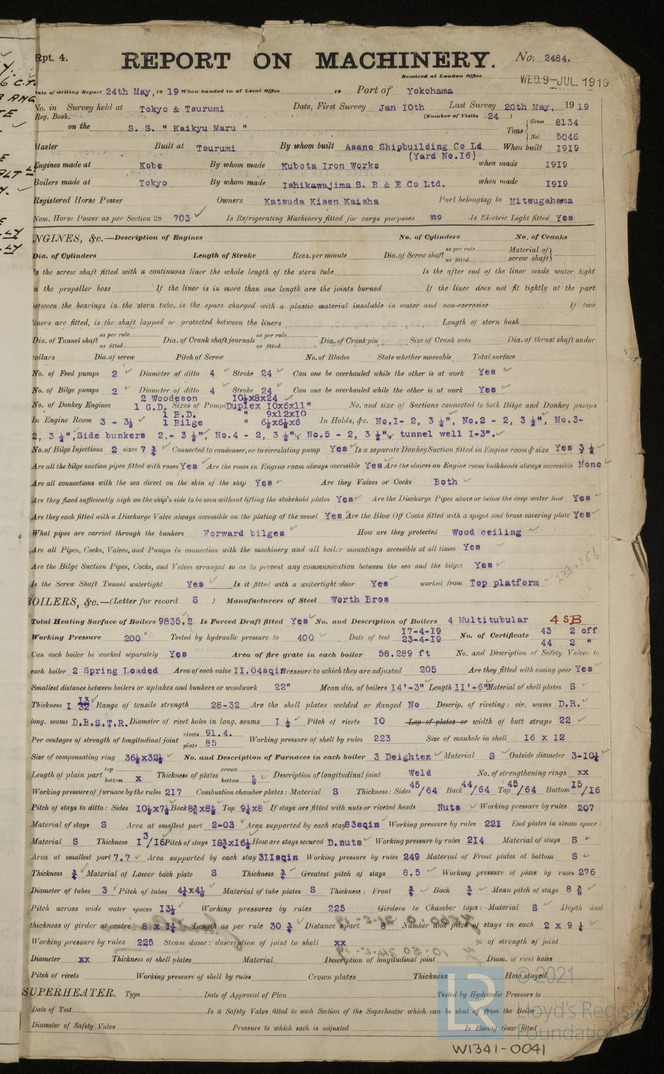 Rpt. 4.
REPORT ON MACHINERY.
No: 2464.
Received at London Office
WED. 9-JUL 1919
Date of writing Report 24th May, 19 19 When handed in at Local Office 19 Port of Yokohama
No. in Survey held at Tokyo & Tsurumi Date, First Survey Jan 10th Last Survey 20th May, 19 19
Reg. Book. (Number of Visits 24 )
on the S. S. " Kaikyu Maru " Tons { Gross 8134
Net 5046
Master Built at Tsurumi By whom built Asano Shipbuilding Co Ld When built 1919
(Yard No.16)
Engines made at Kobe By whom made Kubota Iron Works when made 1919
Boilers made at Tokyo By whom made Ishikawajima S. B & E Co Ltd. when made 1919
Registered Horse Power Owners Katsuda Kisen Kaisha Port belonging to Mitsugahama
Nom. Horse Power as per Section 28 703 Is Refrigerating Machinery fitted for cargo purposes no Is Electric Light fitted Yes
ENGINES, &c.—Description of Engines No. of Cylinders No. of Cranks
Dia. of Cylinders Length of Stroke Revs. per minute Dia. of Screw shaft as per rule as fitted Material of screw shaft
Is the screw shaft fitted with a continuous liner the whole length of the stern tube Is the after end of the liner made water tight
in the propeller boss If the liner is in more than one length are the joints burned If the liner does not fit tightly at the part
between the bearings in the stern tube, is the space charged with a plastic material insoluble in water and non-corrosive If two
liners are fitted, is the shaft lapped or protected between the liners Length of stern bush
Dia. of Tunnel shaft as per rule as fitted Dia. of Crank shaft journals as per rule as fitted Dia. of Crank pin Size of Crank webs Dia. of thrust shaft under
collars Dia. of screw Pitch of Screw No. of Blades State whether moveable Total surface
No. of Feed pumps 2 Diameter of ditto 4 Stroke 24 Can one be overhauled while the other is at work Yes
No. of Bilge pumps 2 Diameter of ditto 4 Stroke 24 Can one be overhauled while the other is at work Yes
2 Woodeson 10½x8x24
No. of Donkey Engines 1 G.D. Sizes of Pumps Duplex 10x6x11" No. and size of Suctions connected to both Bilge and Donkey pumps
1 B.D. " 9x12x10
In Engine Room 3 - 3½ 1 Bilge " 6½x6½x6 In Holds, &c. No.1- 2, 3½", No.2 - 2, 3½", No.3-
2, 3½", Side bunkers 2,- 3½", No.4 - 2, 3½", No.5 - 2, 3½", tunnel well I-3".
No. of Bilge Injections 2 sizes 7¾ Connected to condenser, or to circulating pump Yes Is a separate Donkey Suction fitted in Engine room & size Yes 3½
Are all the bilge suction pipes fitted with roses Yes Are the roses in Engine room always accessible Yes Are the sluices on Engine room bulkheads always accessible None
Are all connections with the sea direct on the skin of the ship Yes Are they Valves or Cocks Both
Are they fixed sufficiently high on the ship's side to be seen without lifting the stokehold plates Yes Are the Discharge Pipes above or below the deep water line Yes
Are they each fitted with a Discharge Valve always accessible on the plating of the vessel Yes Are the Blow Off Cocks fitted with a spigot and brass covering plate Yes
What pipes are carried through the bunkers Forward bilges How are they protected Wood ceiling
Are all Pipes, Cocks, Valves, and Pumps in connection with the machinery and all boiler mountings accessible at all times Yes
Are the Bilge Suction Pipes, Cocks, and Valves arranged so as to prevent any communication between the sea and the bilges Yes
Is the Screw Shaft Tunnel watertight Yes Is it fitted with a watertight door Yes worked from Top platform
BOILERS, &c.—(Letter for record S ) Manufacturers of Steel Worth Bros
Total Heating Surface of Boilers 9835.2 Is Forced Draft fitted Yes No. and Description of Boilers 4 Multitubular 4 SB
Working Pressure 200 Tested by hydraulic pressure to 400 Date of test 17-4-19 23-4-19 No. of Certificate 43 2 off 44 2 "
Can each boiler be worked separately Yes Area of fire grate in each boiler 58.289 ft No. and Description of Safety Valves to
each boiler 2 Spring Loaded Area of each valve 11.04sqin Pressure to which they are adjusted 205 Are they fitted with easing gear Yes
Smallest distance between boilers or uptakes and bunkers or woodwork 22" Mean dia. of boilers 14'-3" Length 11'-6" Material of shell plates S
Thickness 1 13/32 Range of tensile strength 28-32 Are the shell plates welded or flanged No Descrip. of riveting: cir. seams D.R.
long. seams D.B.S.T.R. Diameter of rivet holes in long. seams 1¼ Pitch of rivets 10 Lap of plates or width of butt straps 22
Per centages of strength of longitudinal joint rivets 91.4. plate 85 Working pressure of shell by rules 223 Size of manhole in shell 16 x 12
Size of compensating ring 36½x32½ No. and Description of Furnaces in each boiler 3 Deighten Material S Outside diameter 3-10¼
Length of plain part top bottom x Thickness of plates crown bottom Description of longitudinal joint Weld No. of strengthening rings xx
Working pressure of furnace by the rules 217 Combustion chamber plates: Material S Thickness: Sides 45/64 Back 44/64 Top 45/64 Bottom 15/16
Pitch of stays to ditto: Sides 10½x7½ Back 8¾x8½ Top 9½x8 If stays are fitted with nuts or riveted heads Nuts Working pressure by rules 207
Material of stays S Area at smallest part 2-03 Area supported by each stay 83sqin Working pressure by rules 221 End plates in steam space:
Material S Thickness 1 3/16 Pitch of stays 18¾x16½ How are stays secured D.nuts Working pressure by rules 214 Material of stays S
Area at smallest part 7.7 Area supported by each stay 311sqin Working pressure by rules 249 Material of Front plates at bottom S
Thickness Material of Lower back plate S Thickness Greatest pitch of stays 8.5 Working pressure of plate by rules 276
Diameter of tubes 3 Pitch of tubes 4¼x4¼ Material of tube plates S Thickness: Front Back Mean pitch of stays
Pitch across wide water spaces 13½ Working pressures by rules 225 Girders to Chamber tops: Material S Depth and
thickness of girder at centre 8 x 1¾ Length as per rule 30¾ Distance apart 8 Number and pitch of stays in each 2 x 9½
Working pressure by rules 225 Steam dome: description of joint to shell xx % of strength of joint
Diameter xx Thickness of shell plates Material Description of longitudinal joint Diam. of rivet holes
Pitch of rivets Working pressure of shell by rules Crown plates Thickness How stayed
SUPERHEATER. Type Date of Approval of Plan Tested by Hydraulic Pressure to
Date of Test Is a Safety Valve fitted to each Section of the Superheater which can be shut off from the Boiler
Diameter of Safety Valve Pressure to which each is adjusted Is Easing Gear fitted
© 2021
Lloyd's Register
Foundation
W1341-0041